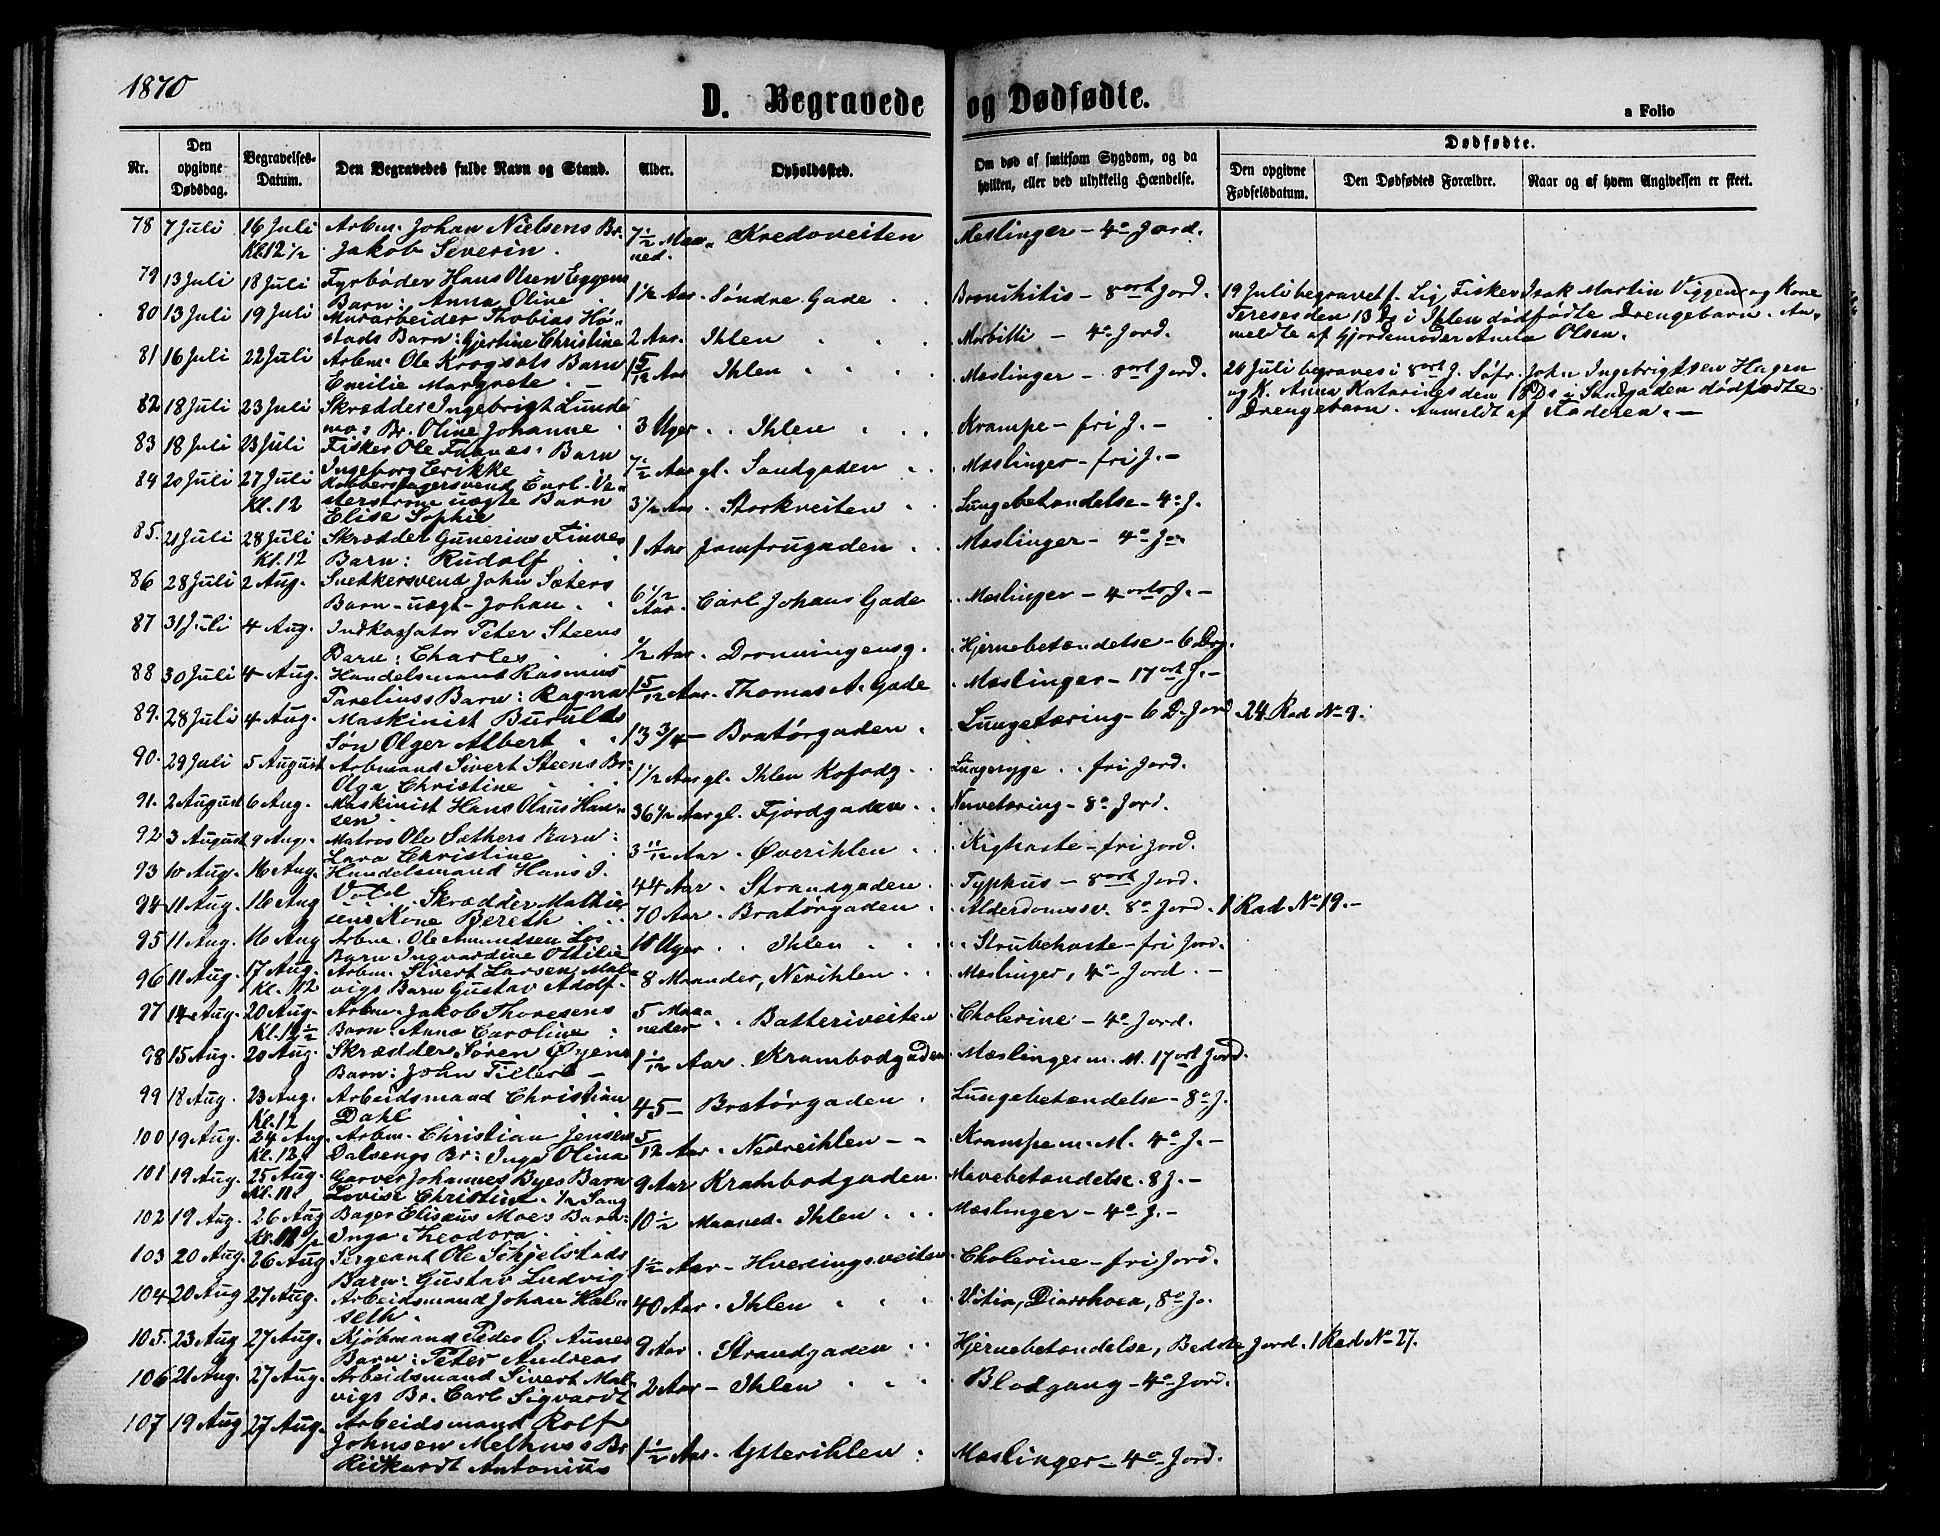 1870
D. Begravede og Dødfødte.
a Folio
Nr.
Den opgivne Dødsdag.
Begravelses-Datum.
Den Begravedes fulde Navn og Stand.
Alder.
Opholdssted.
Om død af smitsom Sygdom, og da hvilken, eller ved ulykkelig Hændelse.
Dødfødte.
Den opgivne Fødselsdatum.
Den Dødfødtes Forældre.
Naar og af hvem Angivelsen er skeet.
78 7 Juli 16 Juli Kl. 12 1/2 Arbm. Johan Nielsens Br. Jakob Severin. 7 1/2 Maaned. Kredoveiten Meslinger - 4de Jord.
79 13 Juli 18 Juli Fyrbøder Hans Olsen Eggens Barn: Anna Oline 1 1/2 Aar. Søndre Gade Bronchitis - 8ort Jord.
19 Juli begravet f. Lig, Fisker Isak Martin Viggen og Kone Tereses den 13 Ds i Ihlen dødfødte Drengebarn. Anmeldte af Gjordemoder Anna Olsen.
80 13 Juli 19 Juli Murarbeider Thobias Høstads Barn: Gjertine Christine 2 Aar. Ihlen Morbilli - 4de Jord.
81 16 Juli 22 Juli Arbm. Ole Krogsæts Barn Emilie Margrete. 1 5/12 Aar Ihlen Meslinger - 8ort Jord.
26 Juli begraves i 8ort J. Søfr. John Ingebrigtsen Hagen og K. Anna Katarines den 18 Ds i Sandgaden dødfødte Drengebarn. Anmeldt af Faderen. -
82 18 Juli 23 Juli Skrædder Ingebrigt Lundemos Br. Oline Johanne 3 Uger Ihlen Krampe - fri J. -
83 18 Juli 23 Juli Fisker Ole Fannes Barn Ingeborg Erikke 7 1/2 Aar gl. Sandgaden Mæslinger - fri J. -
84 20 Juli 27 Juli Kl. 12 Kobberslagersvend Carl Vesterstrøms uægte Barn Elise Sophie 3 1/2 Aar. Storkveiten Lungebetændelse - 4de J.
85. 21 Juli 28 Juli Kl. 12 Skrædder Gunerius Finnes Barn: Rudolf 1 Aar Jomfrugaden Mæslinger - 4de Jo.
86 28 Juli 2 Aug. Snedkersvend John Sæters Barn - uægt - Johan. 6 1/2 Aar. Carl Johans Gade Mæslinger - 4orts J. -
87 31 Juli 4 Aug. Indkassator Peter Steens Barn: Charles 1/2 Aar. Dronningensg. Hjernebetændelse - 6 Drg.
88 30 Juli 4 Aug. Handelsmand Rasmus Parelius's Barn: Ragna 1 5/12 Aar. Thomas A. Gade Mæslinger - 17ort J. -
89. 28 Juli 4 Aug. Maskinist Burulds Søn Olger Albert 13 3/4 - Bratørgaden. Lungetæring - 6 D. Jord 24 Rad No 9.
90. 29 Juli 5 August Arbmand Sivert Steens Br. Olga Christine 1 1/2 Aar gl. Ihlen Kofodg. Lungesyge fri Jord.
91. 2 August 6 Aug. Maskinist Hans Olaus Hansen. 36 1/2 Aar gl. Fjordgaden Nervetæring - 8de Jord.
92 3 August 9 Aug. Matros Ole Sæthers Barn: Lara Christine 3 11/12 Aar. Øverihlen Kighoste - fri Jord.
93 10 Aug. 16 Aug. Handelsmand Hans J. Vold. 44 Aar. Strandgaden. Typhus - 8ort Jord.
94 11 Aug. 16 Aug Skrædder Mathiesens Kone Bereth. 70 Aar. Bratørgaden. Alderdomssv. 8de Jord. 1 Rad No 19. -
95 11 Aug. 16 Aug Arbm. Ole Amundsen Los Barn Ingvardine Ottilie 18 Uger Ihlen Strubehoste - fri Jord.
96 11 Aug. 17 Aug. Kl. 12 Arbm. Sivert Larsen Malvigs Barn Gustav Adolf. 8 Maaneder, Nerihlen Mæslinger, 4de Jord. -
97 14 Aug. 20 Aug. Kl. 12 1/2 Arbm. Jakob Thoresens Barn: Anna Caroline 5 Maaneder Batteriveiten Cholerine - 4de Jord.
98 15 Aug. 20 Aug. Skrædder Søren Øyens Barn: John Tillert - 1 1/12 Aar. Krambodgaden Mæslinger m. M. 17ort Jord.
99 18 Aug. 23 Aug. Kl. 12 Arbeidsmand Christian Dahl 45 - Bratørgaden Lungebetændelse - 8de J.
100 19 Aug. 24 Aug. Kl. 12 Arbm. Christian Jensen Dalsengs Br: Inga Olina 5/12 Aar. Nedreihlen - Krampe m. M. 4de J. -
101 19 Aug. 25 Aug. Kl. 11 Garver Johannes Byes Barn Lovise Christine. 1/2 Sang 9 Aar Krambodgaden. Mavebetændelse. 8 J. -
102 19 Aug. 26 Aug Bager Elisæus Moes Barn: Inga Theodora. 10 1/2 Maaned. Ihlen Mæslinger - 4de J. -
103 20 Aug. 26 Aug Sergeant Ole Schjelstads Barn: Gustav Ludvig 1 1/2 Aar - Hvedingsveiten Cholerine - fri Jord.
104 20 Aug 27 Aug. Arbeidsmand Johan Halseth. 40 Aar. Ihlen Vitia, Diarrhoea, 8de Jo.
105. 23 Aug 27 Aug. Kjøbmand Peder O. Aunes Barn: Peter Andreas 9 Aar. Strandgaden Hjernebetændelse, Bedste Jord. 1 Rad No 27.
106 21 Aug. 27 Aug. Arbeidsmand Sivert Malvigs Br. Carl Sigvardt 2 Aar - Ihlen Blodgang - 4de Jord.
107 19 Aug 27 Aug. Arbeidsmand Rolf Johnsen Melhuus's Br Rickardt Antonius 1 1/2 Aar. Ytterihlen Mæslinger - 4de Jord.